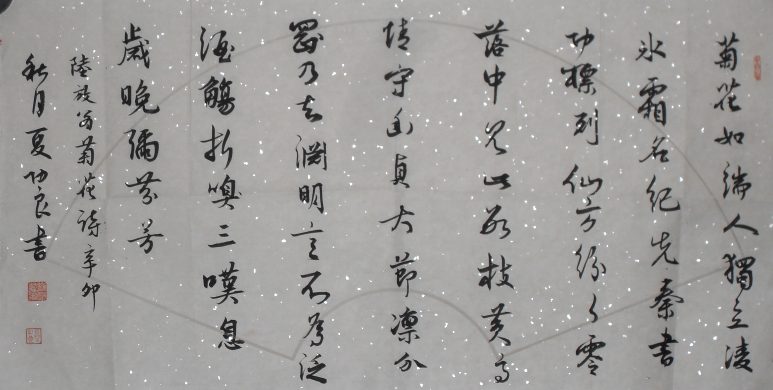 菊花如端人獨立凌
氷霜名紀先秦書
功標列仙方紛々零
落中見此數枝黃高
情守幽貞大節凜介
剛乃知淵明意不為泛
酒觴折嗅三嘆息
歲晚彌芬芳
陸放翁菊花詩辛卯
秋月夏功良書